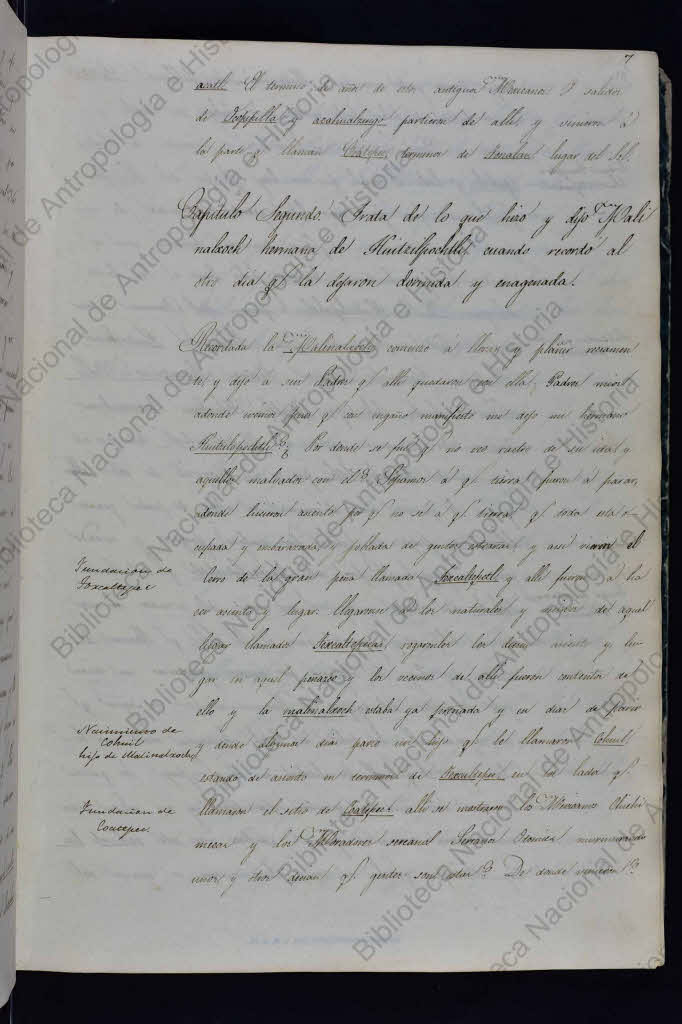 7
acatl. El termino de años de estos antiguos Mexicanos. Y salidos
de Ocopipilla y acahualzingo partieron de alli y vinieron á
la parte q. llaman Coatepec terminos de Tonalan lugar del Sol.
Capitulo Segundo. Trata de lo que hizo y dijo Mali
nalxoch hermana de Huitzilpochtli, cuando recordó al
otro dia q. la dejaron dormida y enagenada.
Recordada la Malinalxoch, comenzo a llorar y plañir reciamen
te y dijo á sus Padres q. alli quedaron con ella, Padres mios
adonde iremos pues q. con engaño manifiesto me dejo mi hermano
Huitzilopochtli? Por donde se fué q. no veo rastro de su ida y
aquellos malvados con el? Sepamos á q. tierra fueron á parar,
donde hicieron asiento por q. no sé á q. tierra q. toda está o
cupada y embarazada y poblada de gentes estrañas y asi vieron el
Cerro de la gran peña llamada Texcaltepetl y alli fueron a ha
cer asiento y lugar. llegaronse a los naturales y vecinos de aquel
lugar llamados Texcaltepecas rogaronles les diesen asiento y lu
gar en aquel peñasco y los vecinos de alli fueron contentos de
ello y la malinalxoch estaba ya preñada y en dias de parir
y dende algunos dias pario un hijo q. le llamaron Cohuil,
estando de asiento en terminos de Texcaltepec, en los lados q.
llamaron el sitio de Coatepec alli se mostraron los Mexicanos Chichi
mecas y los Moradores serranos Otomies murmurando
unos y otros decian q. gentes son estas? De donde vinieron?
Fundacion de
Texcaltepec
Nacimiento de
Cohuil
hijo de Malinalxoch
Fundacion de
Coatepec.
Biblioteca Nacional de Antropología e Historia